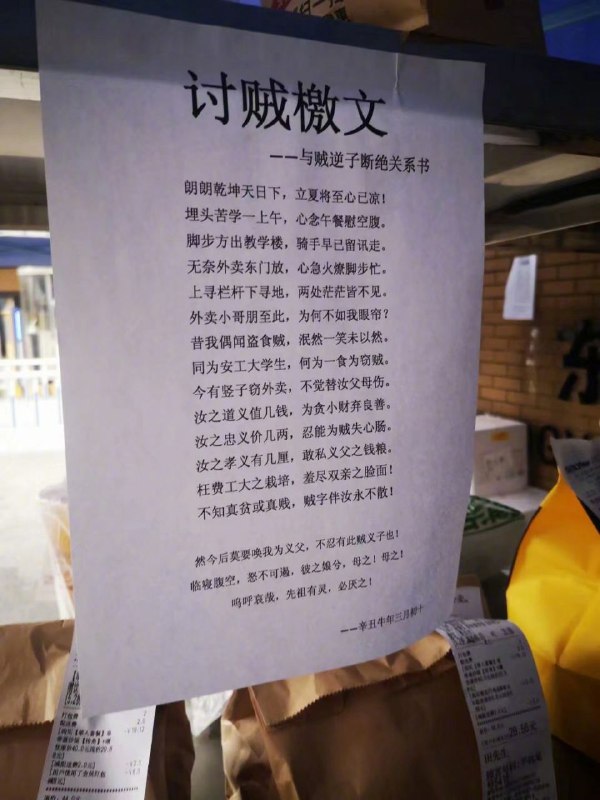 讨贼檄文
——与贼逆子断绝关系书
朗朗乾坤天日下，立夏将至心已凉！
埋头苦学一上午，心念午餐慰空腹。
脚步方出教学楼，骑手早已留讯走。
无奈外卖东门放，心急火燎脚步忙。
上寻栏杆下寻地，两处茫茫皆不见。
外卖小哥朋至此，为何不如我眼帘？
昔我偶闻盗食贼，泯然一笑未以然。
同为安工大学生，何为一食为窃贼。
今有竖子窃外卖，不觉替汝父母伤。
汝之道义值几钱，为贪小财弃良善。
汝之忠义价几两，忍能为贼失心肠。
汝之孝义有几厘，敢私义父之钱粮。
枉费工大之栽培，羞尽双亲之脸面！
不知真贫或真贱，贼字伴汝永不散！
然今后莫要唤我为义父，不忍有此贼义子也！
临寝腹空，怒不可遏，彼之娘兮，母之！母之！
呜呼哀哉，先祖有灵，必厌之！
——辛丑牛年三月初十
东
打包费
配送费
29.50元